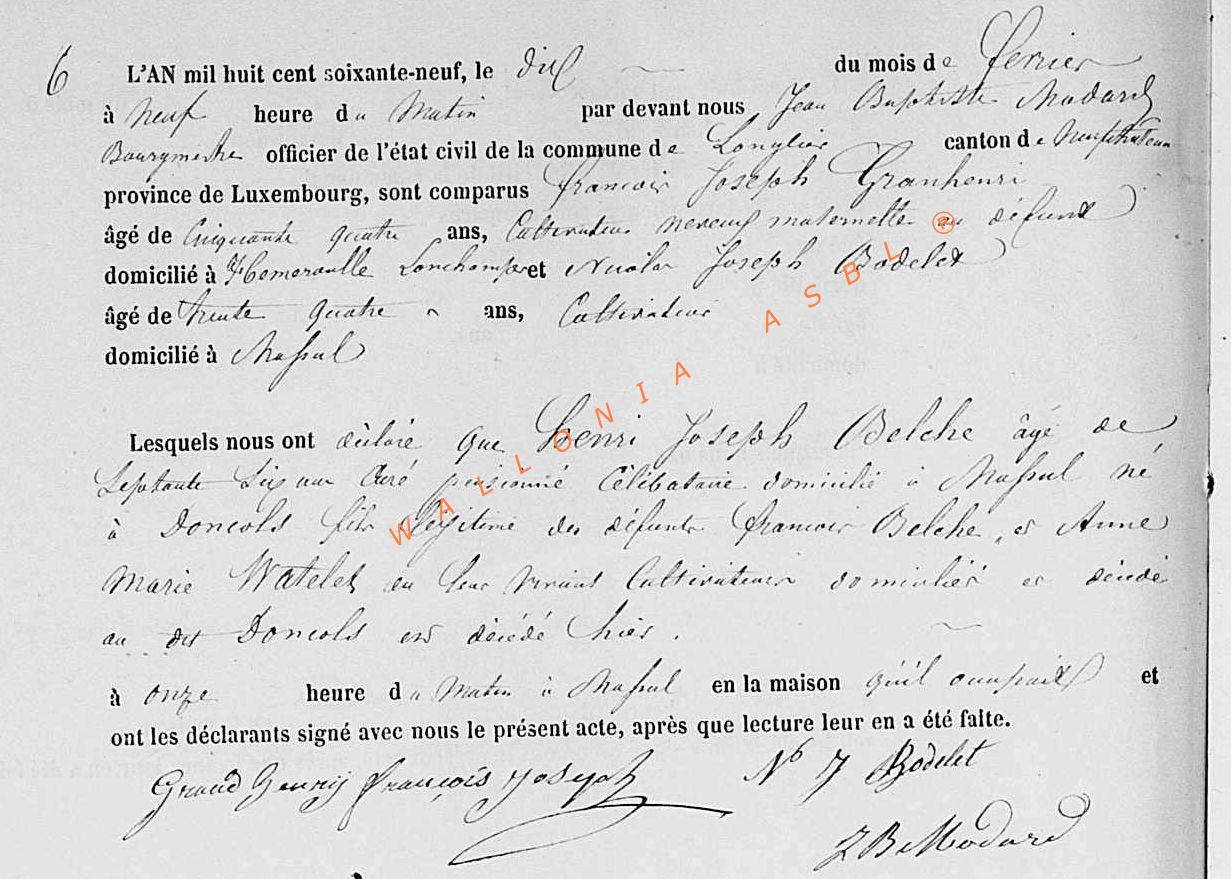 6 L'AN mil huit cent soixante-neuf, le dix du mois de fevrier
à neuf heure du Matin par devant nous Jean Baptiste Modard
Bourgmestre officier de l'état civil de la commune de Longlier canton de Neufchateau
province de Luxembourg, sont comparus francois Joseph Granhenri
âgé de Cinquante quatre ans, Cultivateur neveux maternelle au défunt
domicilié à Hemeroulle Lonchamps et Nicolas Joseph Bodelet
âgé de trente quatre ans, Cultivateur
domicilié à Massul
Lesquels nous ont déclaré que Henri Joseph Belche âgé de
Septante Six ans Curé pensionné Célibataire domicilié à Massul né
à Doncols fils légitime des défunts francois Belche et Anne
Marie Watelet en leur vivant Cultivateurs domiciliés et décédé
au dit Doncols est décédé hier.
à onze heure du Matin à Massul en la maison qu'il occupait et
ont les déclarants signé avec nous le présent acte, après que lecture leur en a été faite.
Grand Henry françois joseph Nas J Bodelet
J B Modard
WALLONIA ASBL ®